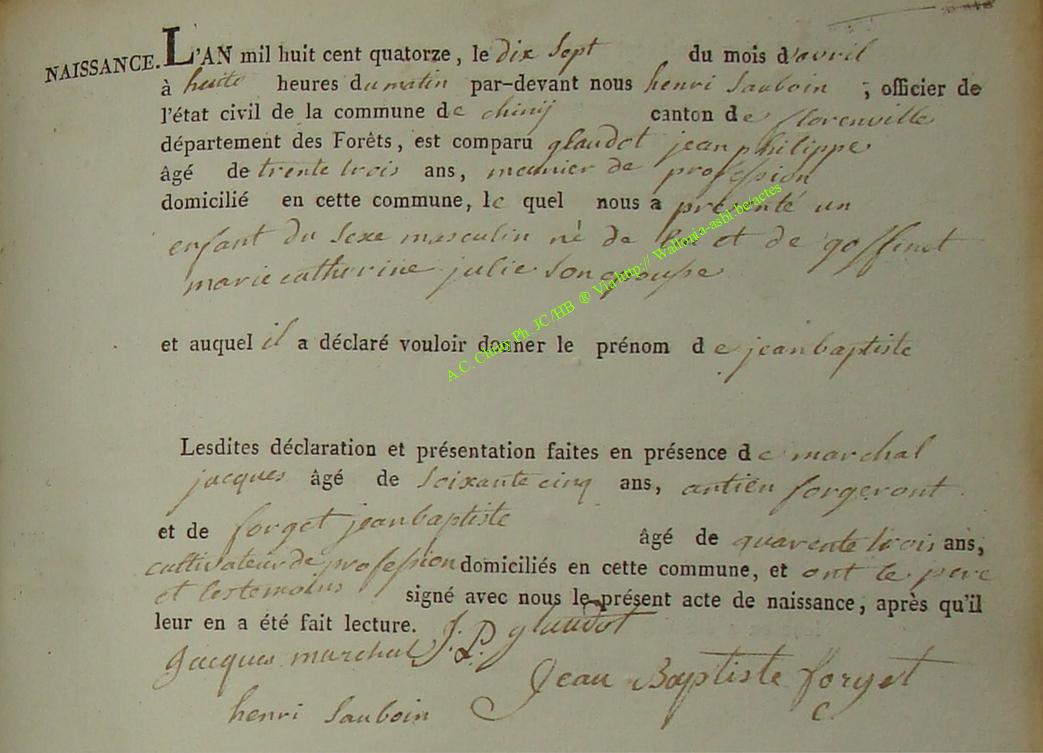 NAISSANCE. L'AN mil huit cent quatorze, le dix Sept du mois d'avril
à huite heures du matin par-devant nous henri Sauboin, officier de
l'état civil de la commune de chinij canton de florenville
département des Forêts, est comparu glaudot jean philippe
âgé de trente trois ans, meunier de profession
domicilié en cette commune, le quel nous a présenté un
enfant du Sexe masculin né de lui et de goffinet
marie catherine julie Son epouse
et auquel il a déclaré vouloir donner le prénom de jean baptiste
Lesdites déclaration et présentation faites en présence de marchal
jacques âgé de Soixante cinq ans, antien forgeront
et de forget jean baptiste âgé de quarente trois ans,
cultivateur de profession domiciliés en cette commune, et ont le pere
et les temoins signé avec nous le présent acte de naissance, après qu'il
leur en a été fait lecture. J. P. glaudot
Jacques marchal
Jean Baptiste forget
henri Sauboin
A.C. Chiny Ph JC/HB ® Via http:// Wallonia-asbl.be/actes